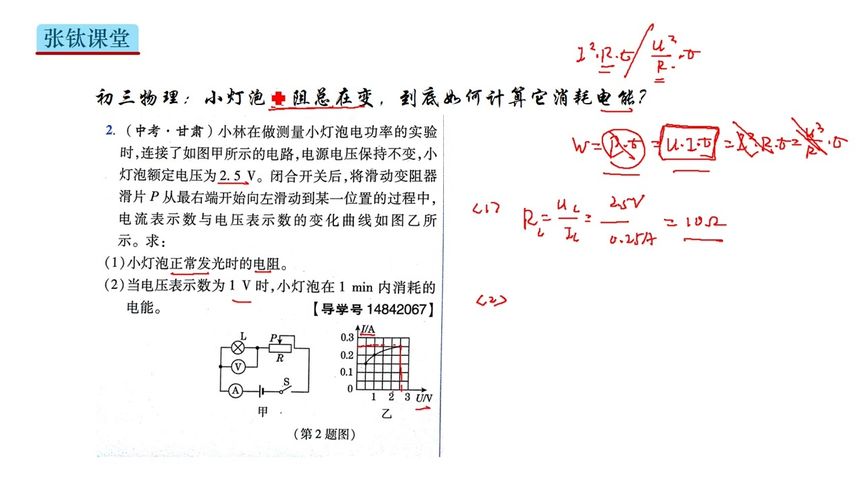 张钛课堂
I²·R·t / U²/R·t
初三物理：小灯泡 阻总在变，到底如何计算它消耗电能？
2.（中考·甘肃）小林在做测量小灯泡电功率的实验
时,连接了如图甲所示的电路,电源电压保持不变,小
灯泡额定电压为 2.5 V。闭合开关后,将滑动变阻器
滑片 P 从最右端开始向左滑动到某一位置的过程中,
电流表示数与电压表示数的变化曲线如图乙所
示。求：
(1)小灯泡正常发光时的电阻。
(2)当电压表示数为 1 V 时,小灯泡在 1 min 内消耗的
电能。
【导学号 14842067】
W=P·t=U·I·t=I²·R·t=U²/R·t
<1> R_L=U_L/I_L=2.5V/0.25A=10Ω
<2>
L P R V A S
甲
I/A
0.3
0.2
0.1
0 1 2 3 U/V
乙
(第 2 题图)